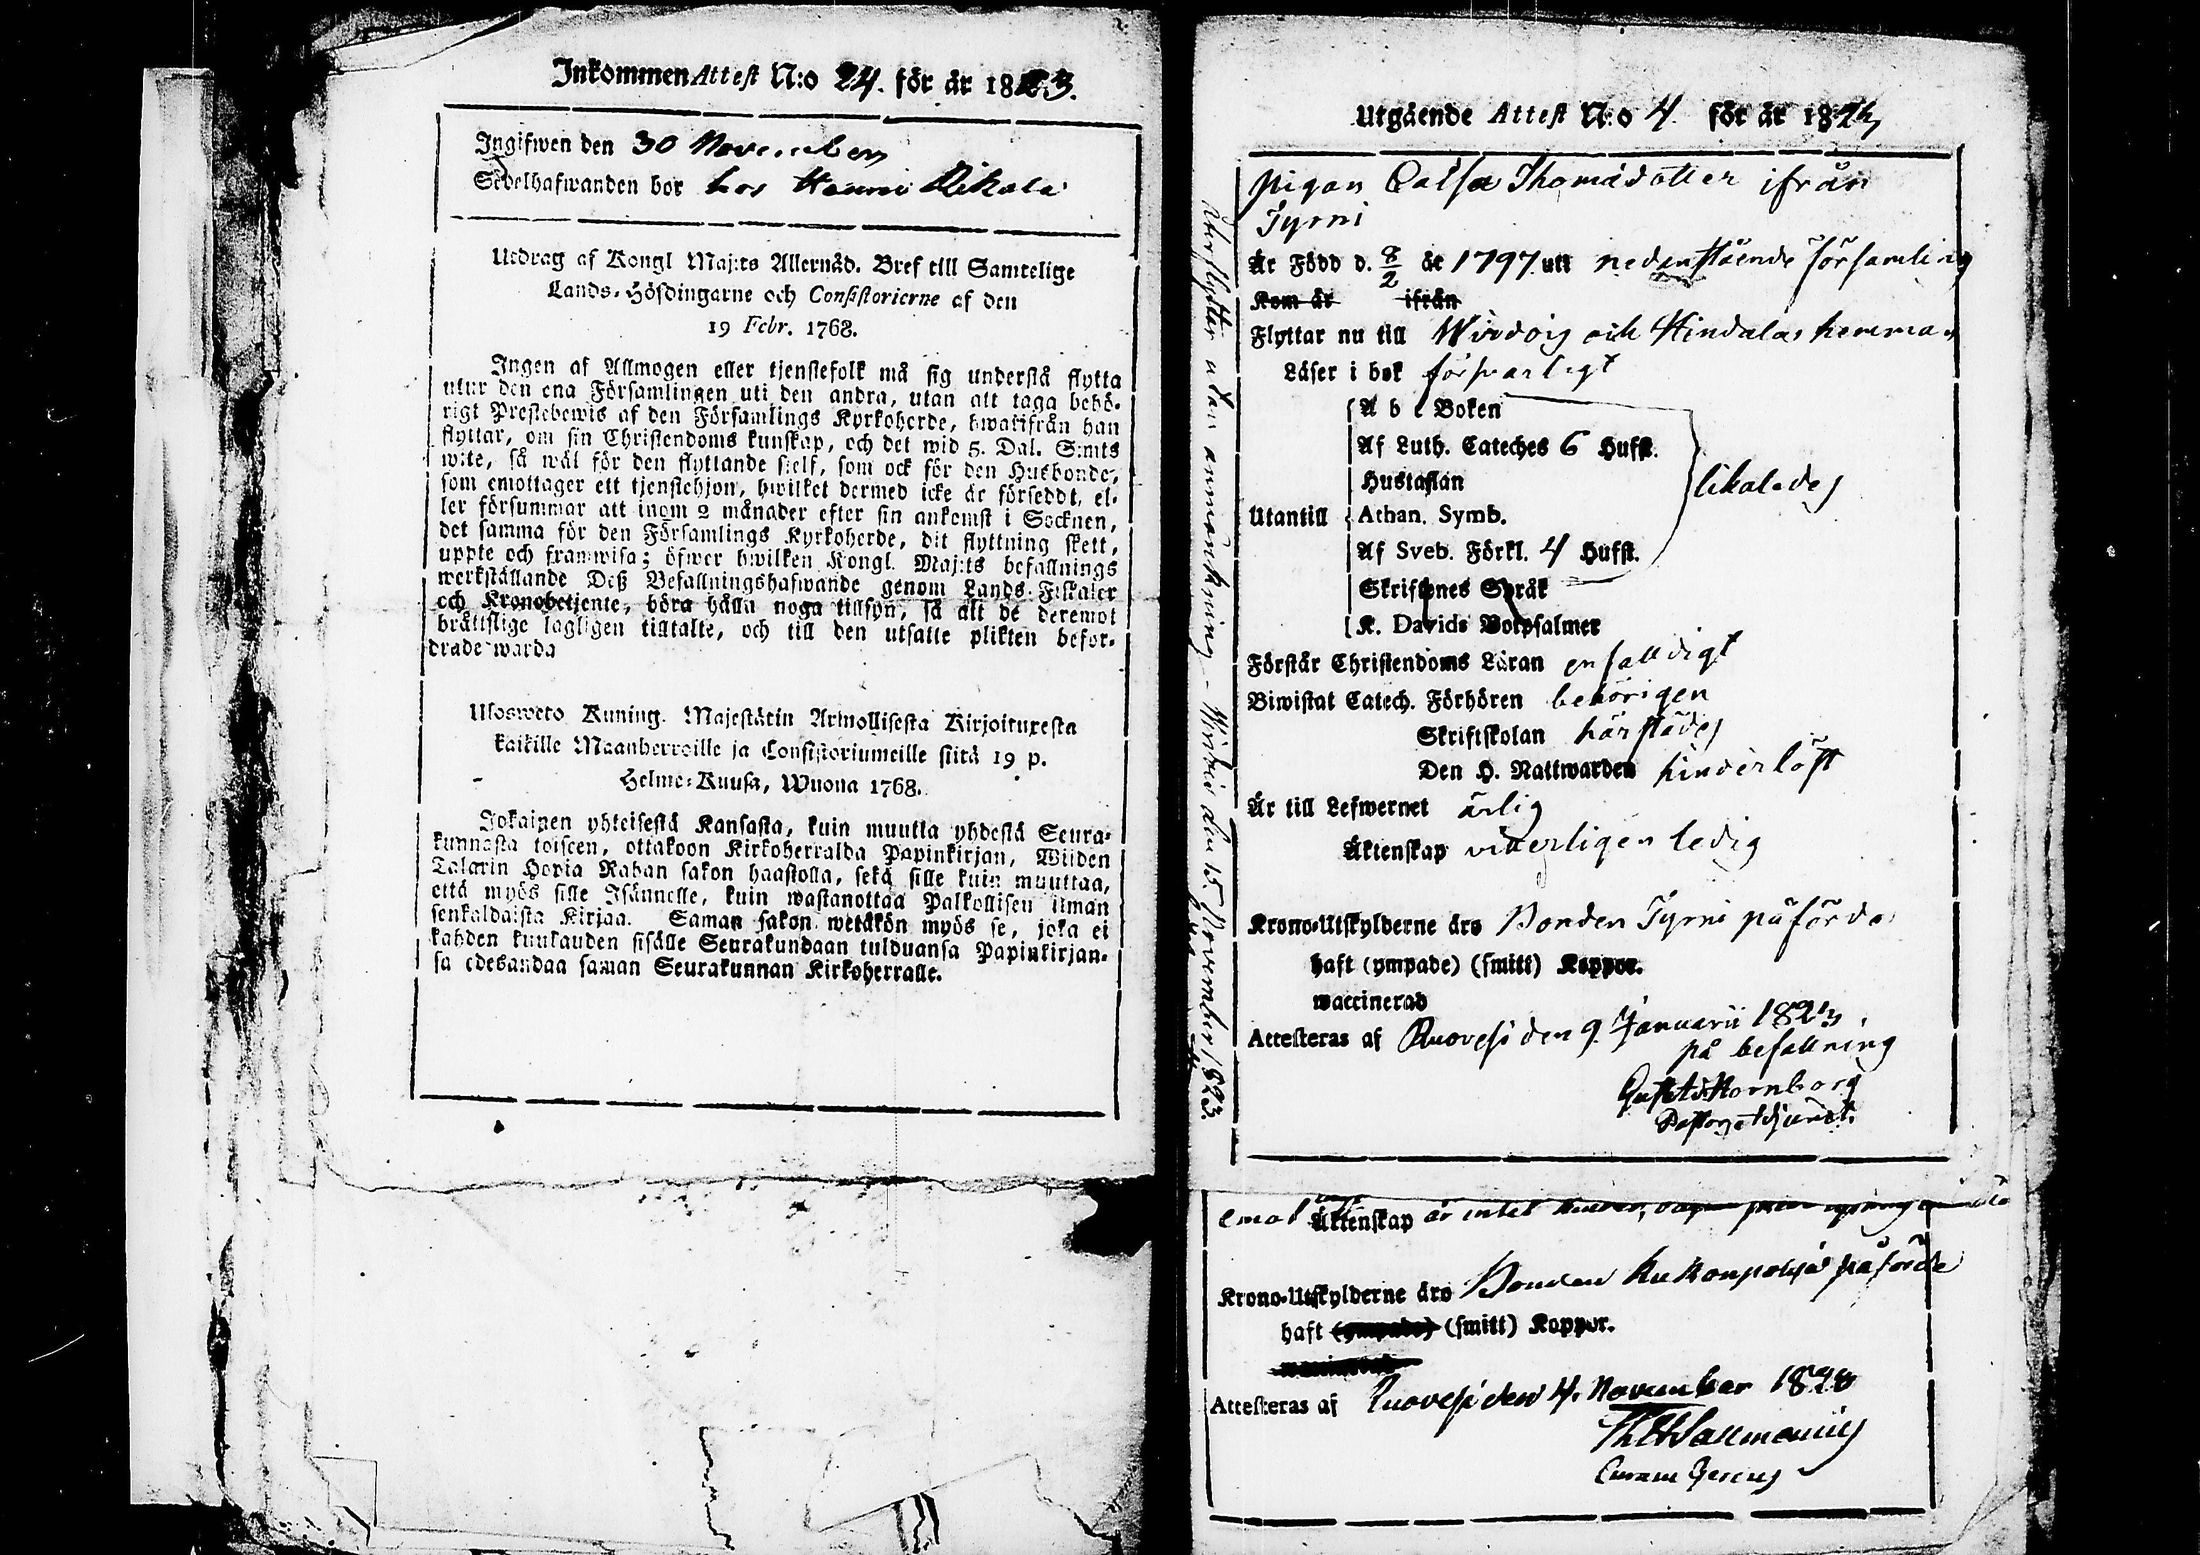 Inkommen Attest N:o 24. för år 1823.
Ingifwen den 30 November
Sedelhafwanden bor hos Hannu Rikala
Utdrag af Kongl Maj:ts Allernåd. Bref till Samtelige
Lands-Höfdingarne och Consistorierne af den
19 Febr. 1768.
Ingen af Allmogen eller tjenstefolk må sig understå flytta
utur den ena Församlingen uti den andra, utan att taga behö-
rigt Prestebewis af den Församlings Kyrkoherde, hwarifrån han
flyttar, om sin Christendoms kunskap, och det wid 5. Dal. S:mts
wite, så wäl för den flyttande sjelf, som ock för den Husbonde,
som emottager ett tjenstehjon, hwilket dermed icke är försedt, el-
ler försummar att inom 2 månader efter sin ankomst i Socknen,
det samma för den Församlings Kyrkoherde, dit flyttning skett,
uppte och framwisa; öfwer hwilken Kongl. Maj:ts befallnings
werkställande Deß Befallningshafwande genom Lands-Fiskaler
och Kronobetjente, böra hålla noga tillsyn, så att de deremot
bråttslige lagligen tilltalte, och till den utsatte plikten befor-
drade warda
Ulosweto Kuning. Majestätin Armollisesta Kirjoituxesta
kaikille Maanherroille ja Consistoriumeille siitä 19 p.
Helme-Kuusa, Wuona 1768.
Jokainen yhteisestä Kansasta, kuin muutta yhdestä Seura-
kunnasta toiseen, ottakoon Kirkoherralda Papinkirjan, Wiiden
Talarin Hopia Rahan sakon haastolla, sekä sille kuin muuttaa,
että myös sille Isännelle, kuin wastanottaa Palkollisen ilman
senkaldaista Kirjaa. Saman sakon wetäkön myös se, joka ei
kahden kuukauden sisälle Seurakundaan tulduansa Papinkirjan-
sa edesandaa saman Seurakunnan Kirkoherralle.
Utgående Attest N:o 4 för år 1823
Pigan Caisa Thomasdotter ifrån
Tyrni
Är Född d. 8/2 år 1797 uti nedanstående församling
Kom år ifrån
Flyttar nu till Wirdois och Hindalas hemman
Läser i bok försvarligt
A b c Boken
Af Luth. Cateches 6 Hufst.
Hustaflan
Utantill Athan. Symb. likaledes
Af Sveb. Förkl. 4 Hufst.
Skriftenes Språk
K. Davids Botpsalmer
Förstår Christendoms Läran enfalldigt
Biwistat Catech. Förhören behörigen
Skriftskolan härstädes
Den H. Nattwarden hinderlöst
Är till Lefwernet ärlig
Äktenskap veterligen ledig
Krono-Utskylderne äro Bonden Tyrni påförda
haft (ympade) (smitt) Koppor.
waccinerad
Attesteras af Ruovesi den 9 Januarii 1823
på befallning
Gust. Ad. Hornborg
Pastors Adjunct.
Återflyttar utan anmärkning - Wirdois den 15 November 1823.
Äktenskap är intet
Krono-Utskylderne äro Bonden Kukonpohja påförde
haft (smitt) Koppor.
Attesteras af Ruovesi den 4. November 1828
Salmenius
Curam Gerens